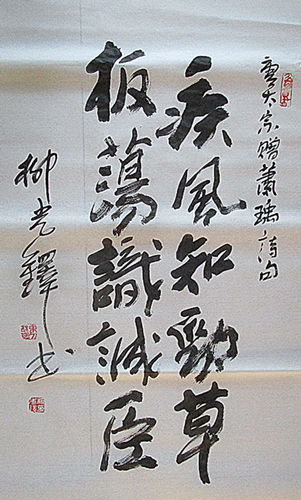 唐太宗赠萧瑀诗句
疾風知勁草
板蕩識誠臣
柳光鐸书